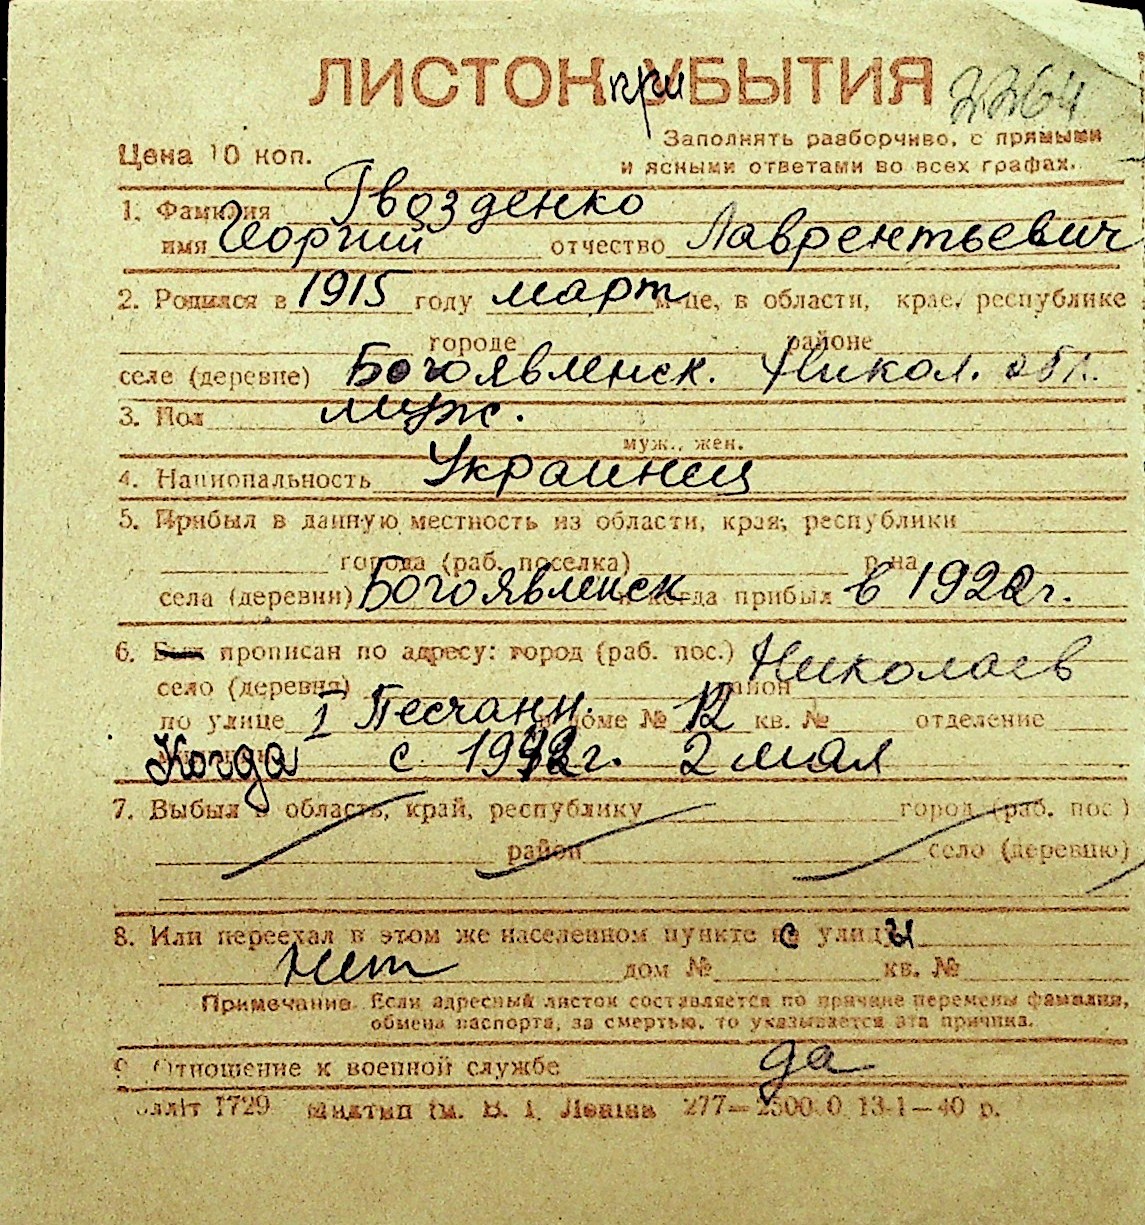 ЛИСТОК при УБЫТИЯ 2264
Цена 10 коп.
Заполнять разборчиво, с прямыми
и ясными ответами во всех графах.
1. Фамилия Гвозденко
имя Георгий отчество Лаврентьевич
2. Родился в 1915 году март м-це, в области, крае, республике
городе районе
селе (деревне) Богоявленск. Никол. обл.
3. Пол муж.
муж., жен.
4. Национальность Украинец
5. Прибыл в данную местность из области, края, республики
города (раб. поселка) р-на
села (деревни) Богоявленск и когда прибыл в 1922г.
6. Был прописан по адресу: город (раб. пос.) Николаев
село (деревня) район
по улице I Песчанн. в доме № 12 кв. № отделение
Когда с 1942г. 2 мая
7. Выбыл в область, край, республику город (раб. пос.)
район село (деревню)
8. Или переехал в этом же населенном пункте с улицы
Нет дом № кв. №
Примечание. Если адресный листок составляется по причине перемены фамилии,
обмена паспорта, за смертью, то указывается эта причина.
9. Отношение к военной службе да
1729 им. В. І. Леніна 277— 13-1—40 р.